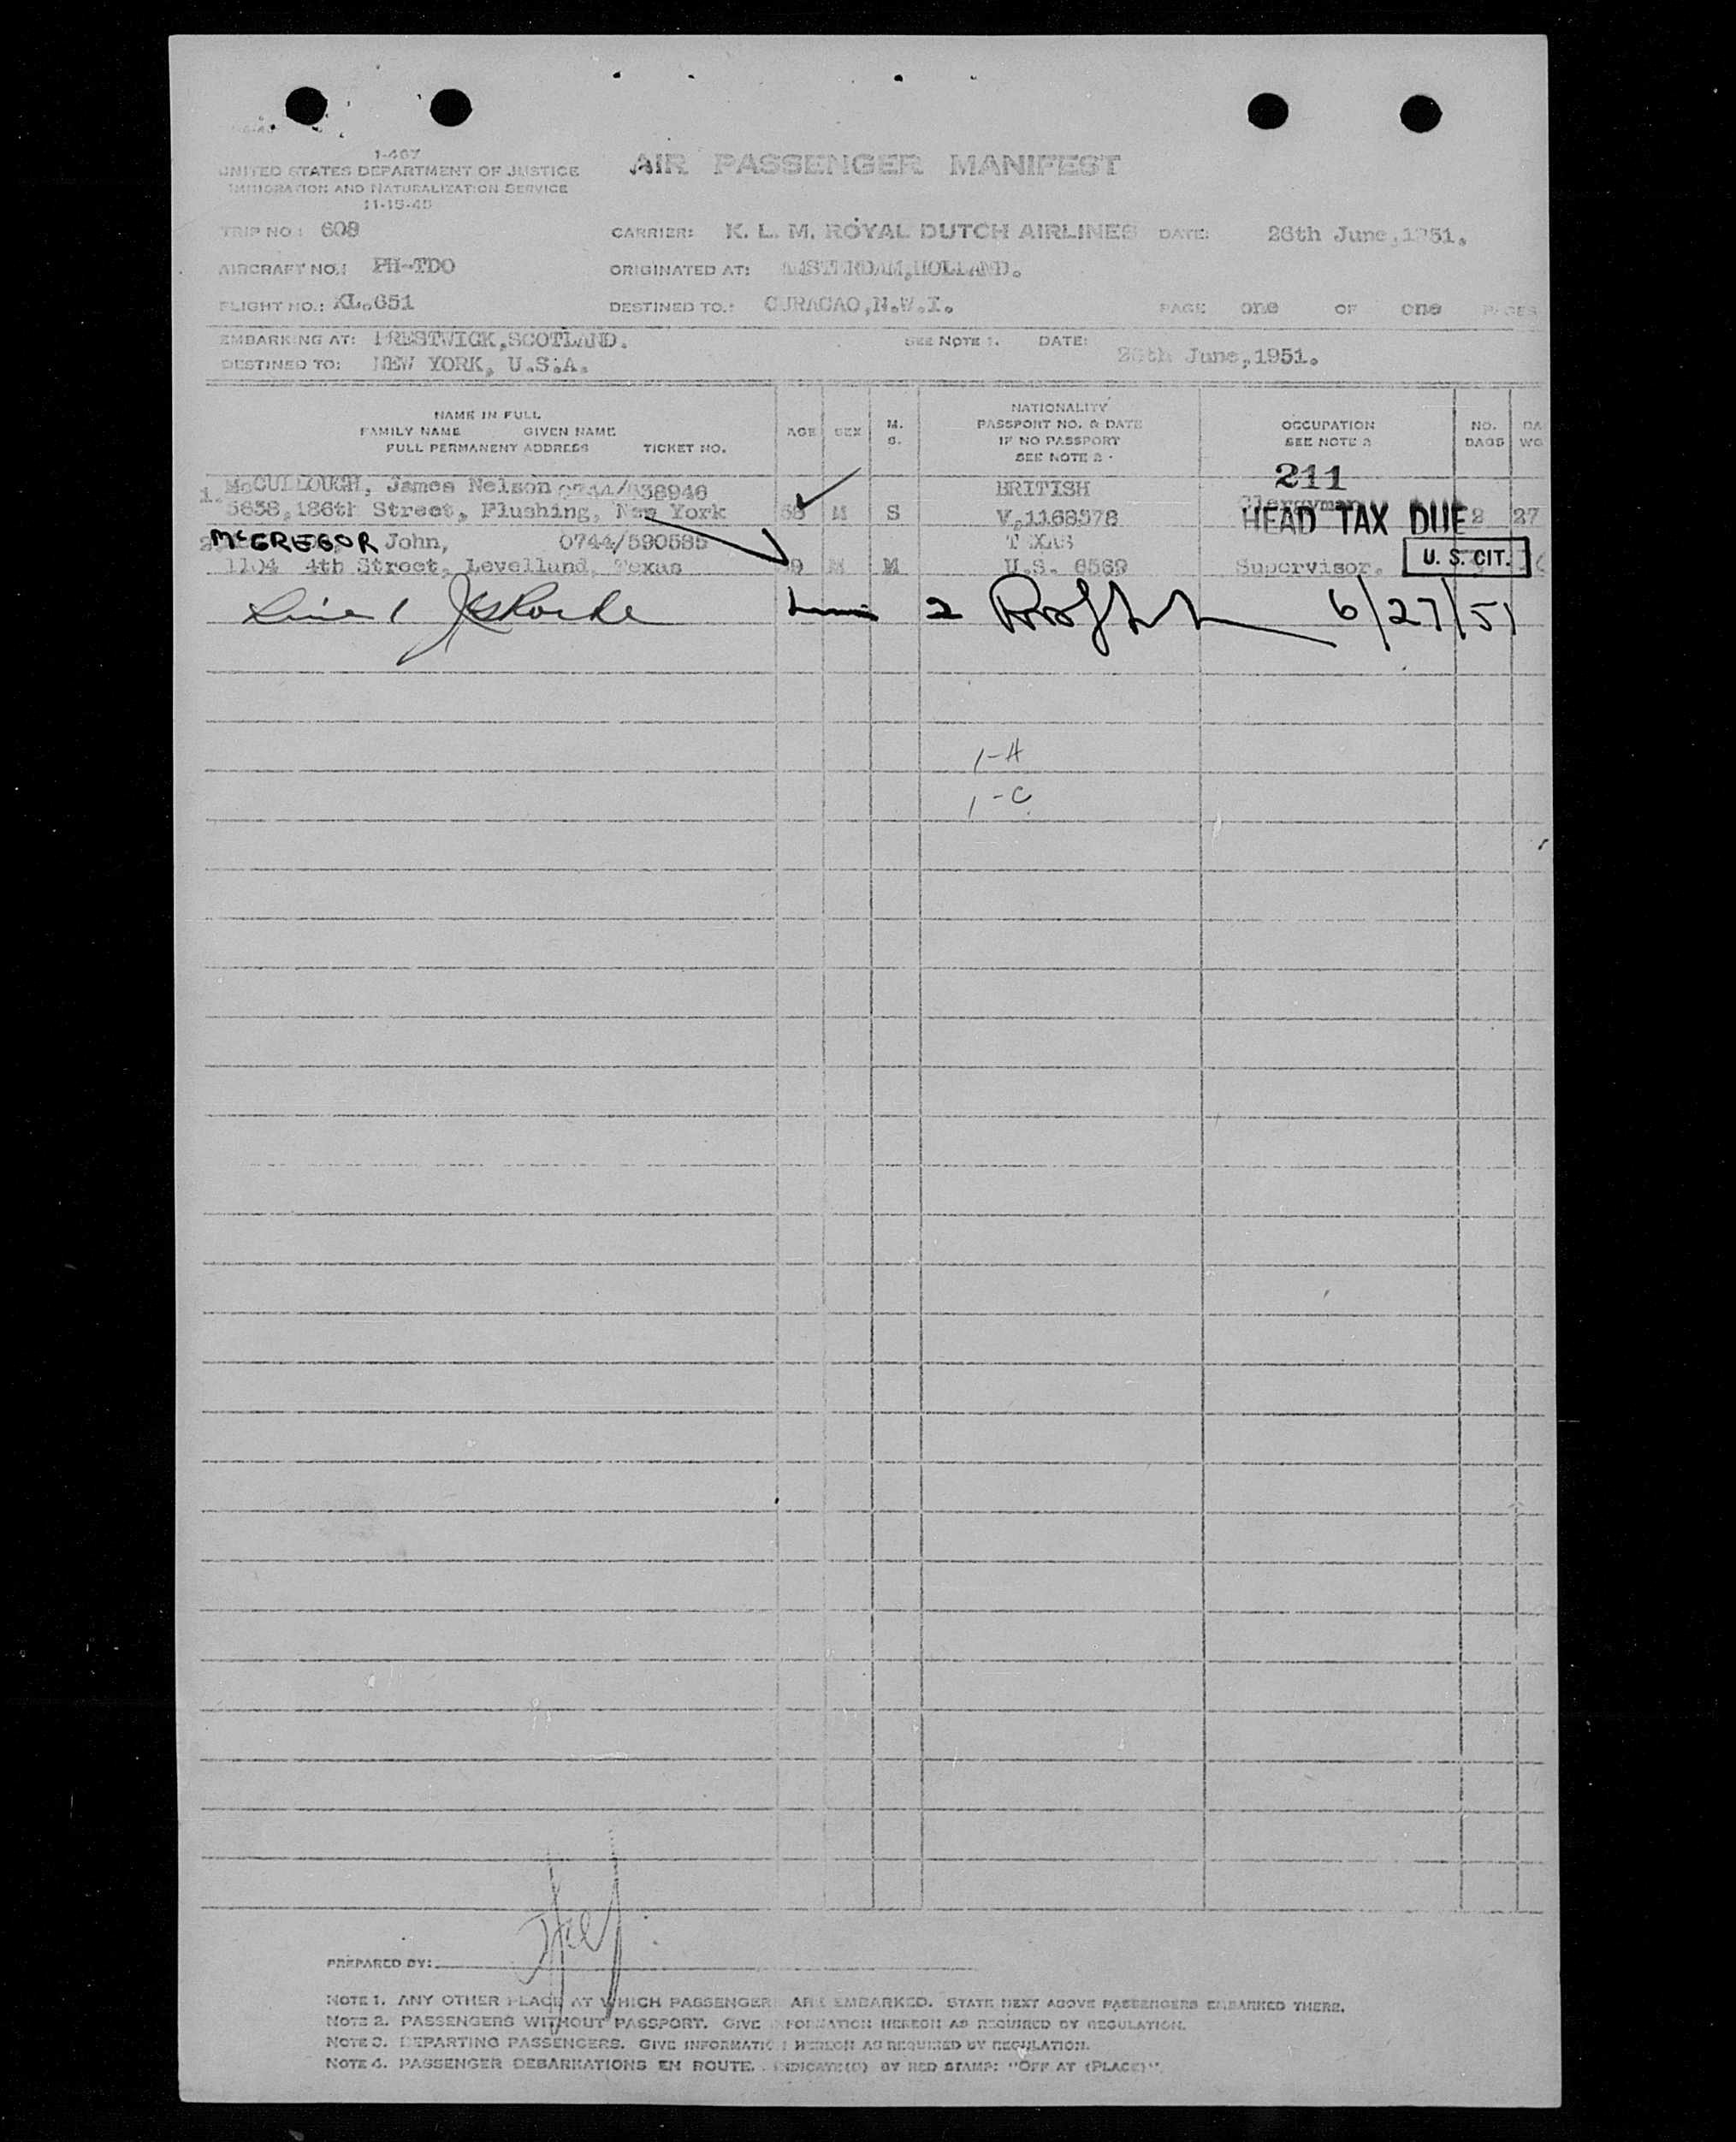 1-467
UNITED STATES DEPARTMENT OF JUSTICE
IMMIGRATION AND NATURALIZATION SERVICE
11-15-45
AIR PASSENGER MANIFEST
TRIP NO: 608
CARRIER: K. L. M. ROYAL DUTCH AIRLINES
DATE: 26th June,1951.
AIRCRAFT NO.: PH-TDO
ORIGINATED AT: AMSTERDAM,HOLLAND.
FLIGHT NO.: KL.651
DESTINED TO.: CURACAO,N.W.I.
PAGE one OF one PAGES
EMBARKING AT: PRESTWICK,SCOTLAND.
SEE NOTE 1. DATE: 26th June,1951.
DESTINED TO: NEW YORK, U.S.A.
NAME IN FULL
FAMILY NAME GIVEN NAME
FULL PERMANENT ADDRESS TICKET NO.
AGE SEX M. S.
NATIONALITY
PASSPORT NO. & DATE
IF NO PASSPORT
SEE NOTE 2
OCCUPATION
SEE NOTE 2
NO. BAGS
211
1. McCULLOUGH, James Nelson 0744/ BRITISH Clergyman
5638,186th Street, Flushing, New York M S V.1168578 HEAD TAX DUE 2 27
McGREGOR John, 0744/590585 TEXAS
1104 4th Street, Levelland, Texas M M U.S. 6569 Supervisor. U. S. CIT.
Line 1 Line 2 6/27/51
1-A
1-C
PREPARED BY:
NOTE 1. ANY OTHER PLACE AT WHICH PASSENGER ARE EMBARKED. STATE NEXT ABOVE PASSENGERS EMBARKED THERE.
NOTE 2. PASSENGERS WITHOUT PASSPORT. GIVE INFORMATION HEREON AS REQUIRED BY REGULATION.
NOTE 3. DEPARTING PASSENGERS. GIVE INFORMATION HEREON AS REQUIRED BY REGULATION.
NOTE 4. PASSENGER DEBARKATIONS EN ROUTE. INDICATE(D) BY RED STAMP: "OFF AT (PLACE)".